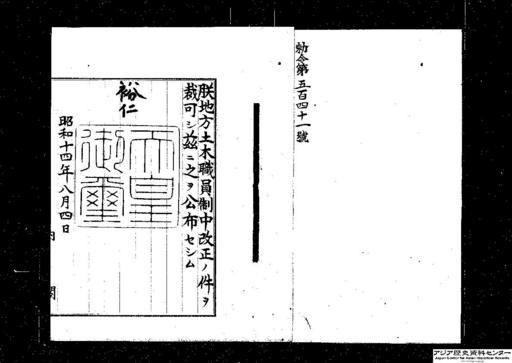 勅令第五百四十一號
朕地方土木職員制中改正ノ件ヲ
裁可シ茲ニ之ヲ公布セシム
裕仁
天皇御璽
昭和十四年八月四日
内閣
アジア歴史資料センター
Japan Center for Asian Historical Records